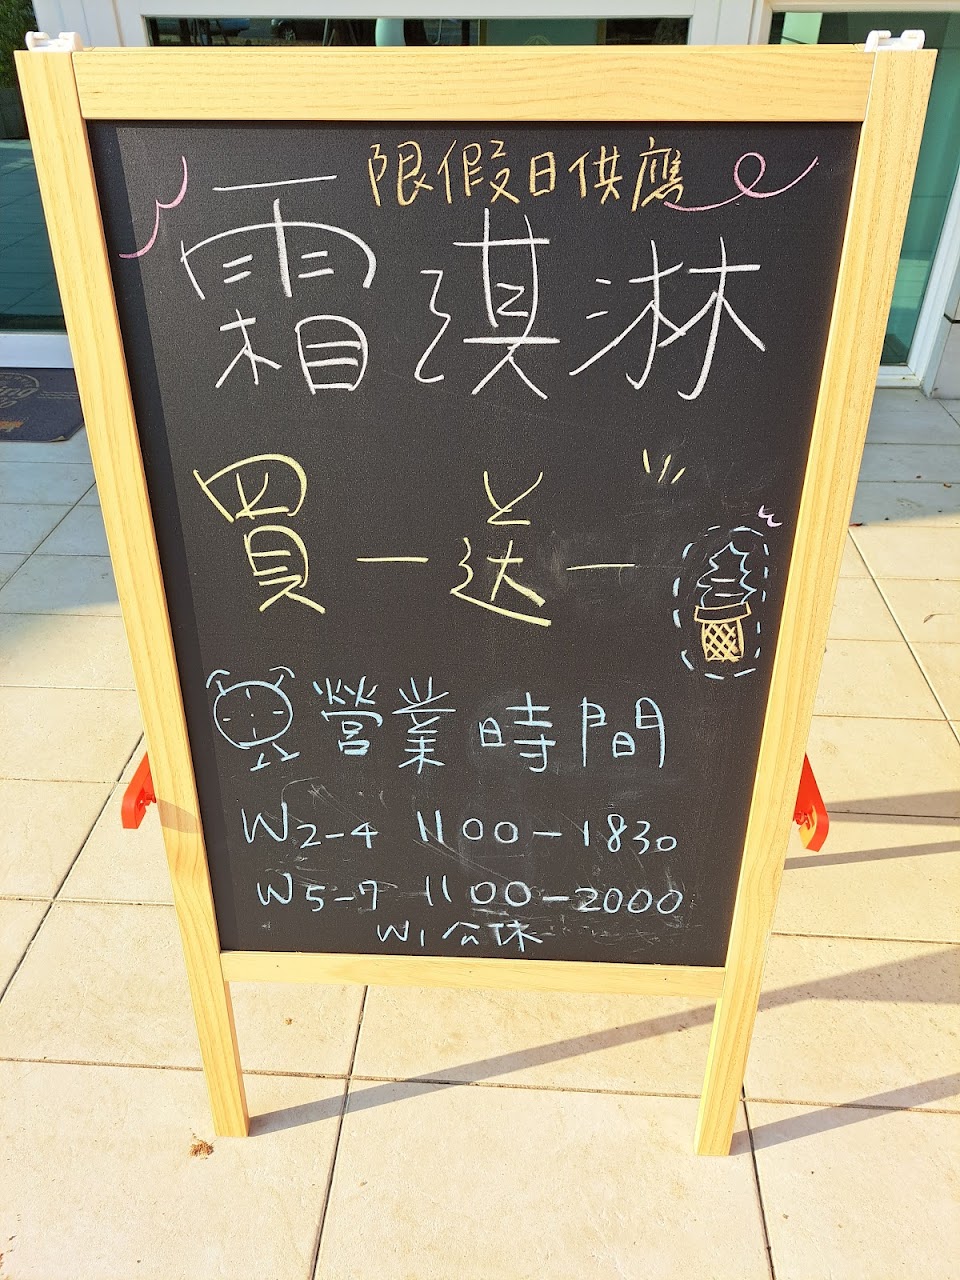 限假日供應
霜淇淋
買一送一
營業時間
W2-4 1100-1830
W5-7 1100-2000
W1公休